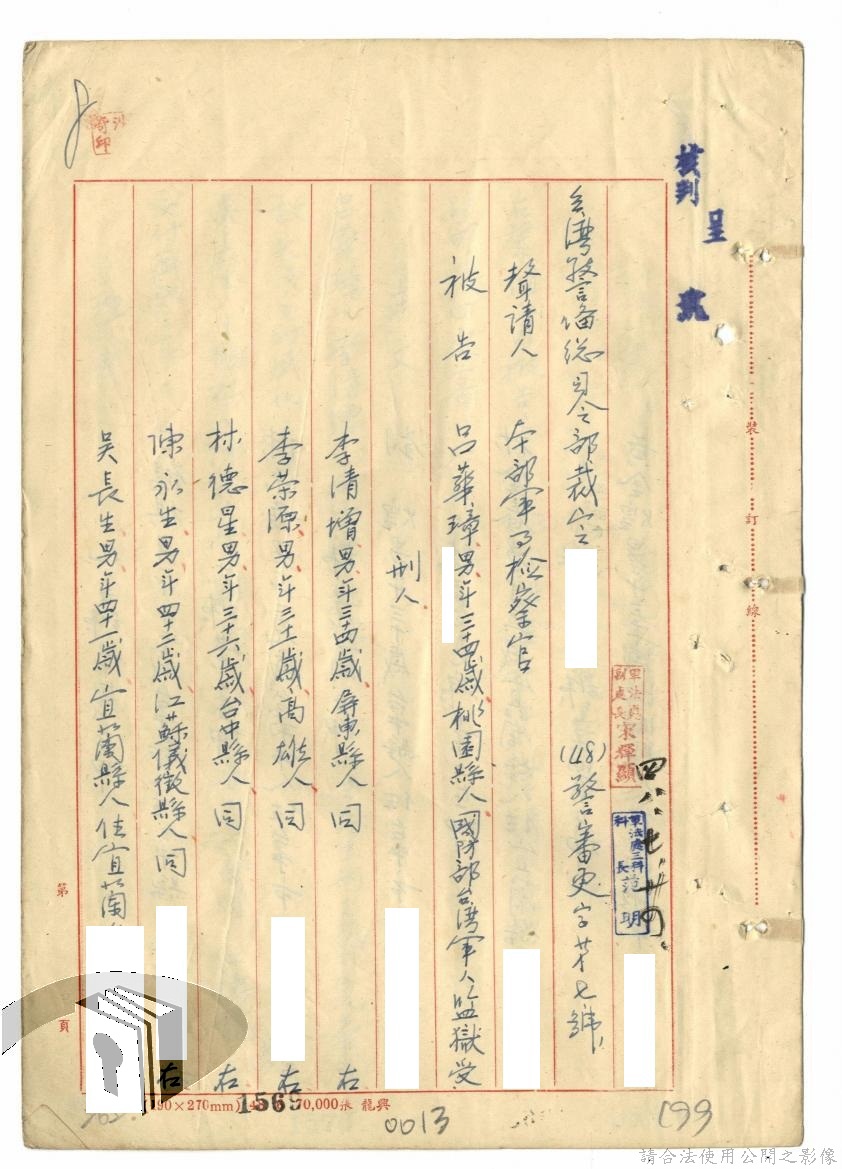 核判
呈
軍法處
副處長宋耀顯
四八、七、廿四
軍法處三科
科長范明
台灣警備總司令部裁定
(48)警審更字第七號
聲請人 本部軍事檢察官
被告 呂華璋男年三十四歲桃園縣人國防部台灣軍人監獄受
刑人
李清增男年三十四歲屏東縣人同右
李荣源男年三十二歲高雄人同右
林德星男年三十六歲台中縣人同右
陳永生男年四十二歲江蘇儀徵縣人同右
吳長生男年四十一歲宜蘭縣人住宜蘭
裝
訂
線
第
頁
(190×270mm)
1569
70,000张 龍興
0013
199
請合法使用公開之影像